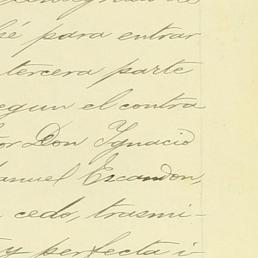 para entrar
tercera parte
egun el contra
or Don Ygnacio
anuel Escandon,
cedo, trasmi-
y perfecta i